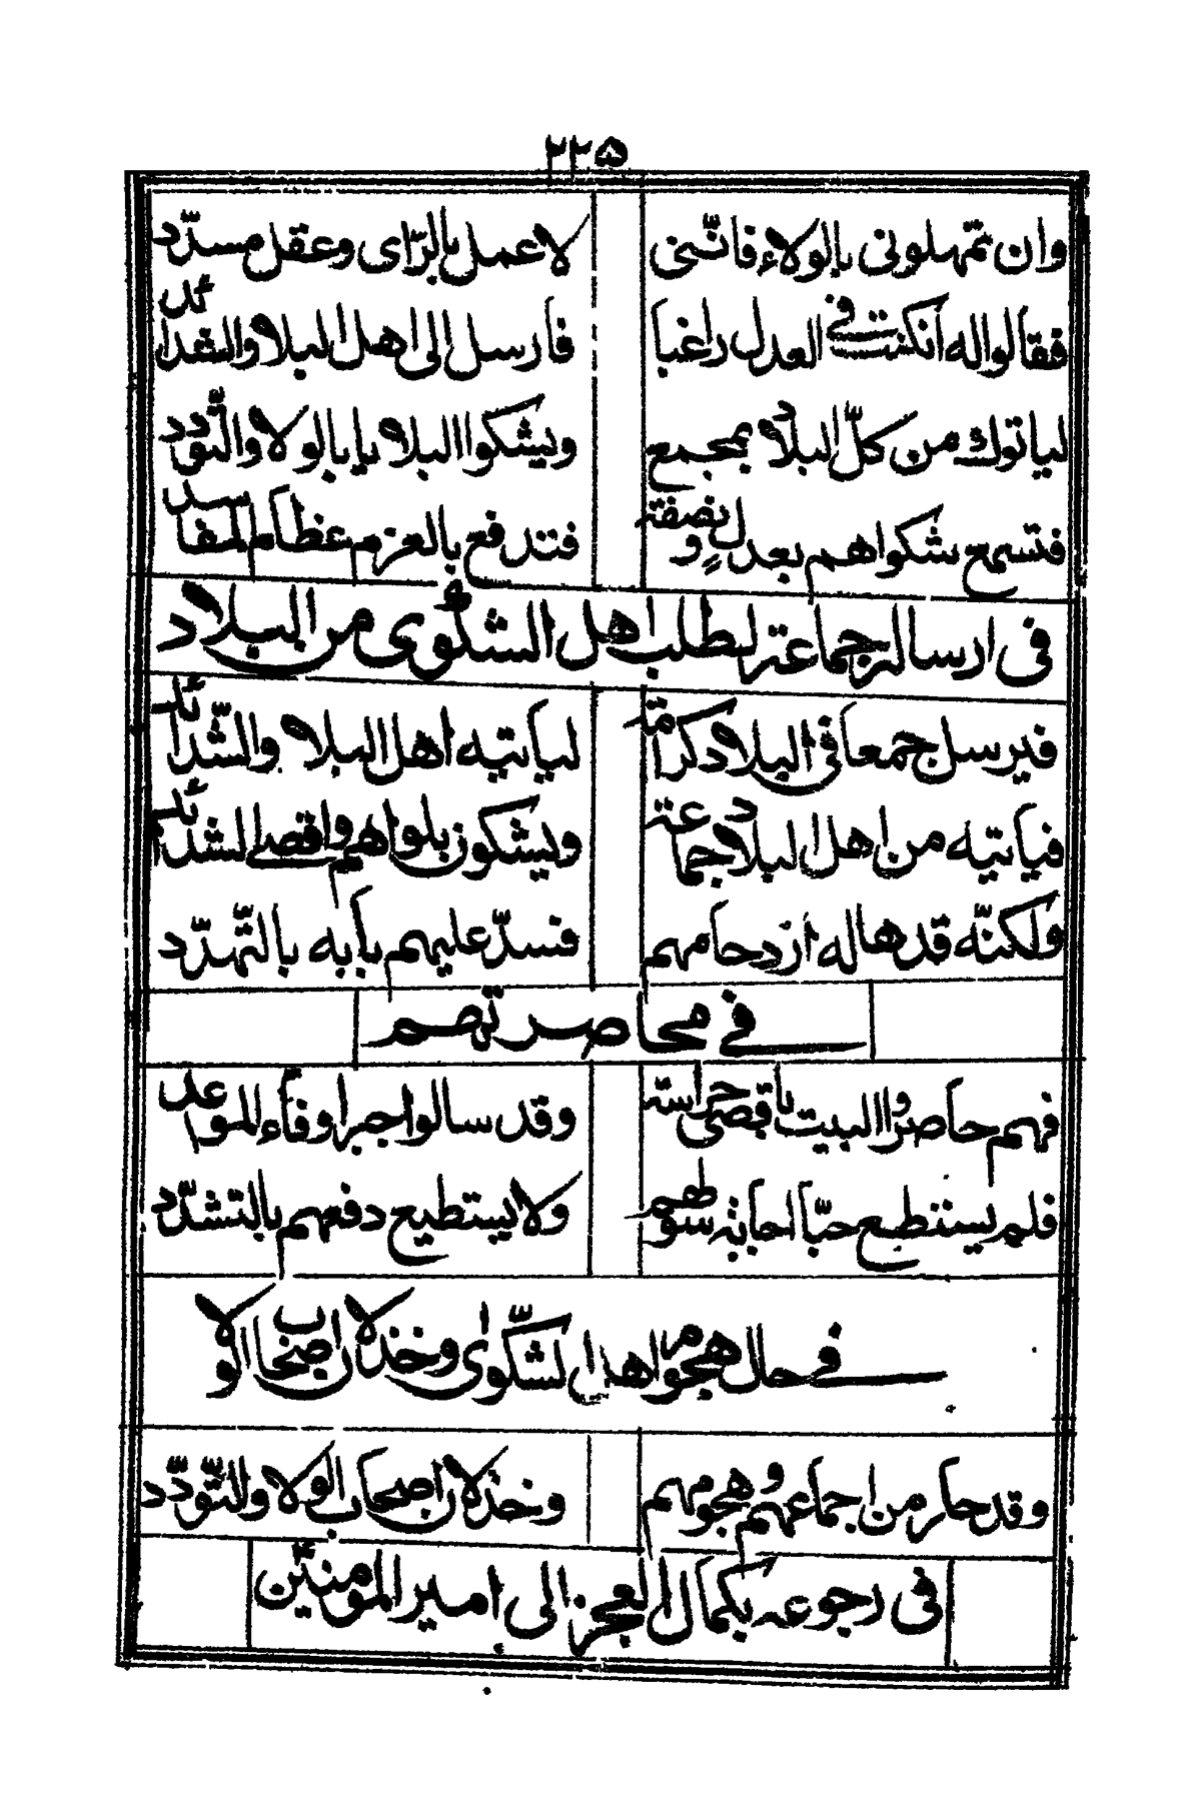 ٢٢٥
وان تمهلونى بالولاء فانّنى لاعمل بالرّاى وعقل مسدّد
فقالوا له ان كنت فى العدل راغبا فارسل الى اهل البلاد والشدائد
لياتوك من كلّ البلاد بمجمع ويشكوا البلايا بالولاء والتودد
فتسمع شكواهم بعدل ونصفة فتدفع بالعزم عظام المفاسد
فى ارساله جماعة لطلب اهل الشكوى من البلاد
فيرسل جمعا فى البلاد كرامة لياتيه اهل البلاد والشّدائد
فياتيه من اهل البلاد جماعة ويشكون بلواهم واقصى الشدائد
ولكنّه قد هاله ازدحامهم فسدّ عليهم بابه بالتهدّد
فى محاصرتهم
فهم حاصروا البيت باقصى حراسة وقد سالوا جبرا وفاء المواعد
فلم يستطع حبّا اجابة سؤلهم ولا يستطيع دفعهم بالتشدّد
فى حال هجوم اهل الشكوى وخذلان اصحاب الولا
وقد حار من اجماعهم وهجومهم وخذلان اصحاب الولاء والتّودّد
فى رجوعه بكمال العجز الى امير المومنين